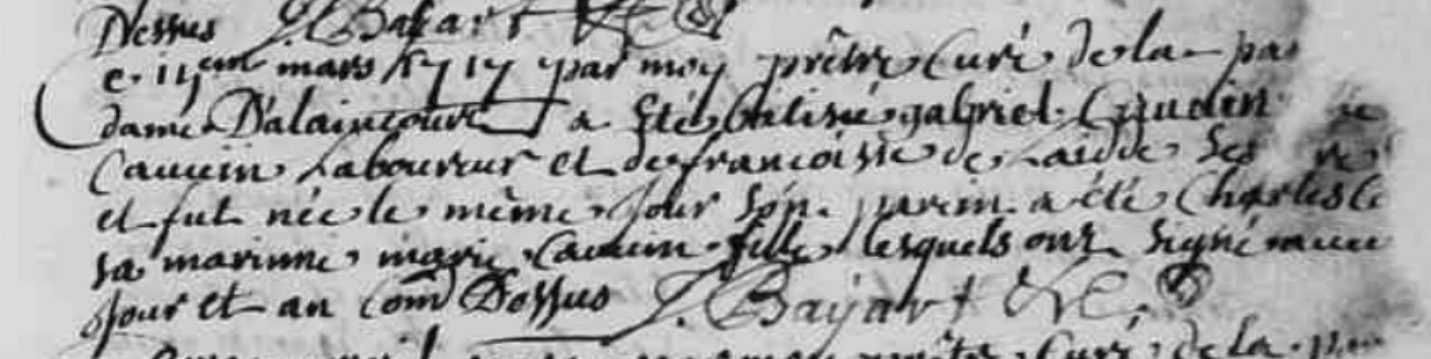 Dessus J. Bayart
Ce 11eme mars 1717 par moy prêtre Curé de la pa
dame D'alaincourt a Eté batisé gabriel
Cauvin Laboureur et de francoise de Laidde Ses
et fut née le même Jour Son parin a été Charles C
sa marinne marie Cauvin fille lesquels ont Signé avec
Jour et an Com Dessus J. Bayart
Curé de la